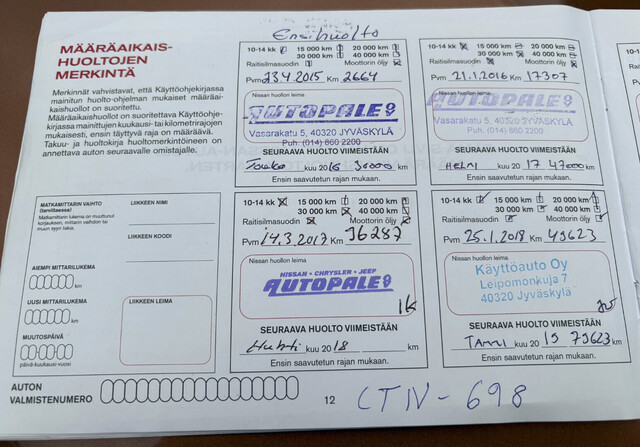 MÄÄRÄAIKAIS-
HUOLTOJEN
MERKINTÄ
Merkinnät vahvistavat, että Käyttöohjekirjassa
mainitun huolto-ohjelman mukaiset määräai-
kaishuollot on suoritettu.
Määräaikaishuollot on suoritettava Käyttöohje-
kirjassa mainittujen kuukausi- tai kilometrirajojen
mukaisesti, ensin täyttyvä raja on määräävä.
Takuu- ja huoltokirja huoltomerkintöineen on
annettava auton seuraavalle omistajalle.
MATKAMITTARIN VAIHTO
(tarvittaessa)
Matkamittarin lukema on muuttunut
korjauksen, mittarin vaihdon tai
muun syyn takia.
AIEMPI MITTARILUKEMA
km
UUSI MITTARILUKEMA
km
MUUTOSPÄIVÄ
päivä-kuukausi-vuosi
LIIKKEEN NIMI
LIIKKEEN KOODI
LIIKKEEN LEIMA
AUTON
VALMISTENUMERO
Ensihuolto
10-14 kk 15 000 km 20 000 km
30 000 km 40 000 km
Raitisilmasuodin Moottorin öljy
Pvm 23.4.2015 Km 2664
Nissan huollon leima
AUTOPALE
Vasarakatu 5, 40320 JYVÄSKYLÄ
Puh. (014) 860 2200
SEURAAVA HUOLTO VIIMEISTÄÄN
Touko kuu 2016 30000 km
Ensin saavutetun rajan mukaan.
10-14 kk 15 000 km 20 000 km
30 000 km 40 000 km
Raitisilmasuodin Moottorin öljy
Pvm 21.1.2016 Km 17307
Nissan huollon leima
AUTOPALE
Vasarakatu 5, 40320 JYVÄSKYLÄ
Puh. (014) 860 2200
SEURAAVA HUOLTO VIIMEISTÄÄN
HELMI kuu 20 17 47000 km
Ensin saavutetun rajan mukaan.
10-14 kk 15 000 km 20 000 km
30 000 km 40 000 km
Raitisilmasuodin Moottorin öljy
Pvm 14.3.2017 Km 36287
Nissan huollon leima
NISSAN - CHRYSLER - JEEP
AUTOPALE
SEURAAVA HUOLTO VIIMEISTÄÄN
Huhti kuu 2018 km
Ensin saavutetun rajan mukaan.
10-14 kk 15 000 km 20 000 km
30 000 km 40 000 km
Raitisilmasuodin Moottorin öljy
Pvm 25.1.2018 Km 49623
Nissan huollon leima
Käyttöauto Oy
Leipomonkuja 7
40320 Jyväskylä
SEURAAVA HUOLTO VIIMEISTÄÄN
TAMMI kuu 20 19 79623 km
Ensin saavutetun rajan mukaan.
12
CTN-698